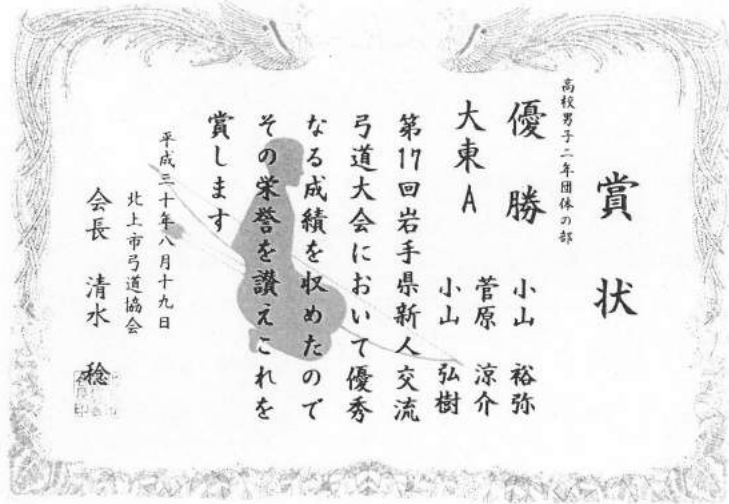 賞状
高校男子二年団体の部
優勝 小山 裕弥
菅原 涼介
大東A 小山 弘樹
第17回岩手県新人交流
弓道大会において優秀
なる成績を収めたので
その栄誉を讃えこれを
賞します
平成三十年八月十九日
北上市弓道協会
会長 清水 稔